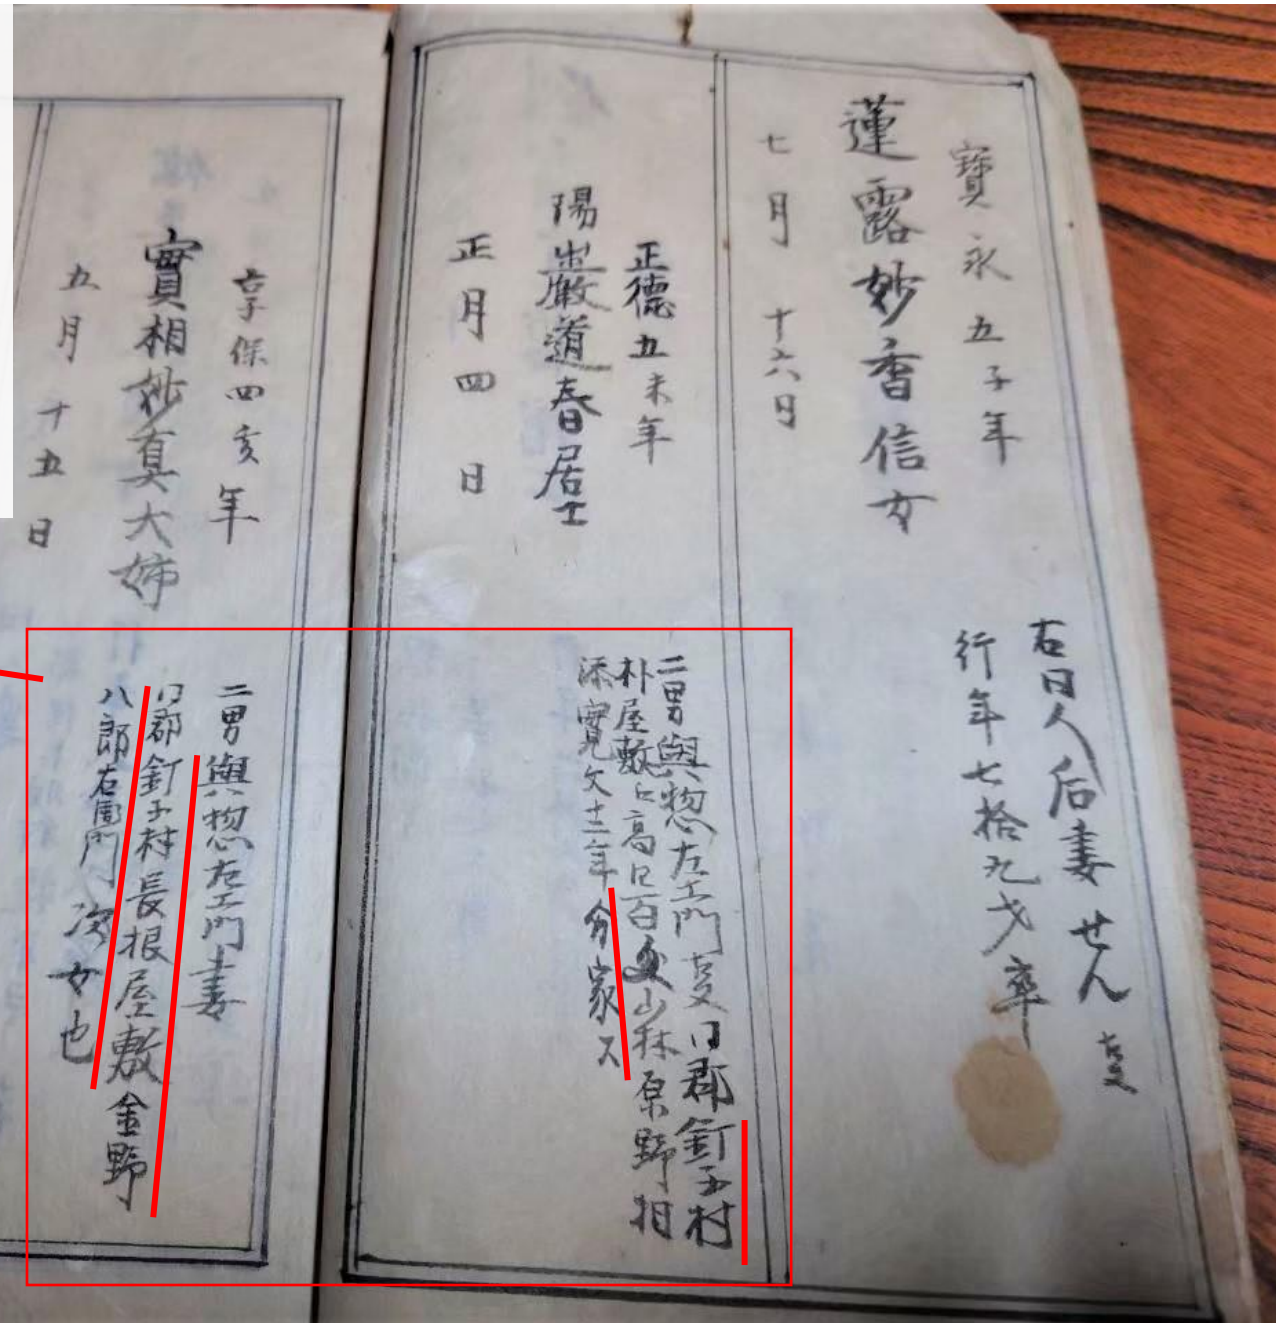 寶永五子年
蓮露妙香信女
七月十六日
右同人后妻せん
行年七拾九才卒
正徳五未年
陽巌道春居士
正月四日
二男與惣左エ門 同郡釘子村
朴屋敷 高 百 山林原野相
添寛文十二年分家ス
享保四亥年
實相妙真大姉
五月十五日
二男與惣左エ門妻
同郡釘子村長根屋敷金野
八郎右衛門次女也